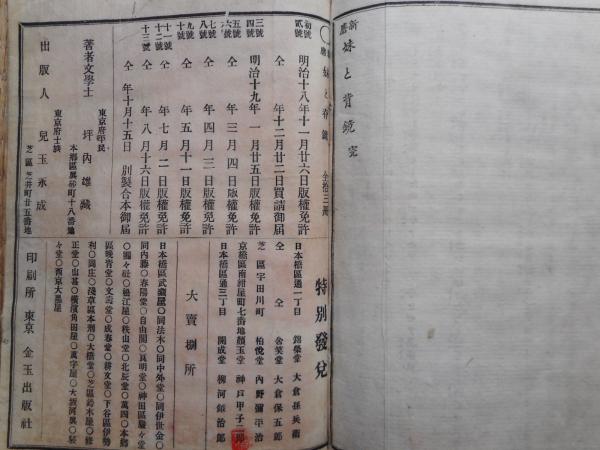 新磨 妹と背鏡 完
新磨 妹と背鏡 全拾三冊
初號 貳號 明治十八年十一月廿六日版權免許
仝 年十二月廿二日賣請御届
三號 明治十九年 一月廿五日版權免許
四號 五號 仝 年 三月四日版權免許
六號 七號 仝 年 四月三日版權免許
八號 九號 仝 年 五月十一日版權免許
十號 十一號 仝 年 七月二日版權免許
十二號 十三號 仝 年 八月十六日版權免許
仝 年十月十五日 別製合本御届
東京府平民
著者文學士 坪内雄藏
本郷區眞砂町十八番地
東京府士族
出版人 兒玉永成
芝區芝井町廿五番地
特別發兌
日本橋區通一丁目 錦榮堂 大倉孫兵衛
仝 仝 金笑堂 大倉保五郎
芝區宇田川町 柏悦堂 内野彌平治
京橋區南紺屋町七番地 顔玉堂 神戸甲子二郎
日本橋區通三丁目 開成堂 柳河領治郎
大賣捌所
日本橋區武藏屋○同法木○同中外堂○同伊世金○
同内藤○春陽堂○自由閣○眞明堂○神田區巖々堂
○團々社○邊江屋○秩山堂○北辰堂○萬四○本郷
區晩青堂○文壽堂○成春堂○耕文堂○下谷區伊勢
利○岡庄○淺草區本刑○大橋堂○芝區鈴木屋○修
正堂○山甚○横濱角田屋○萬字屋○大坂河眞○駸
々堂○西京大黒屋
印刷所 東京 金玉出版社